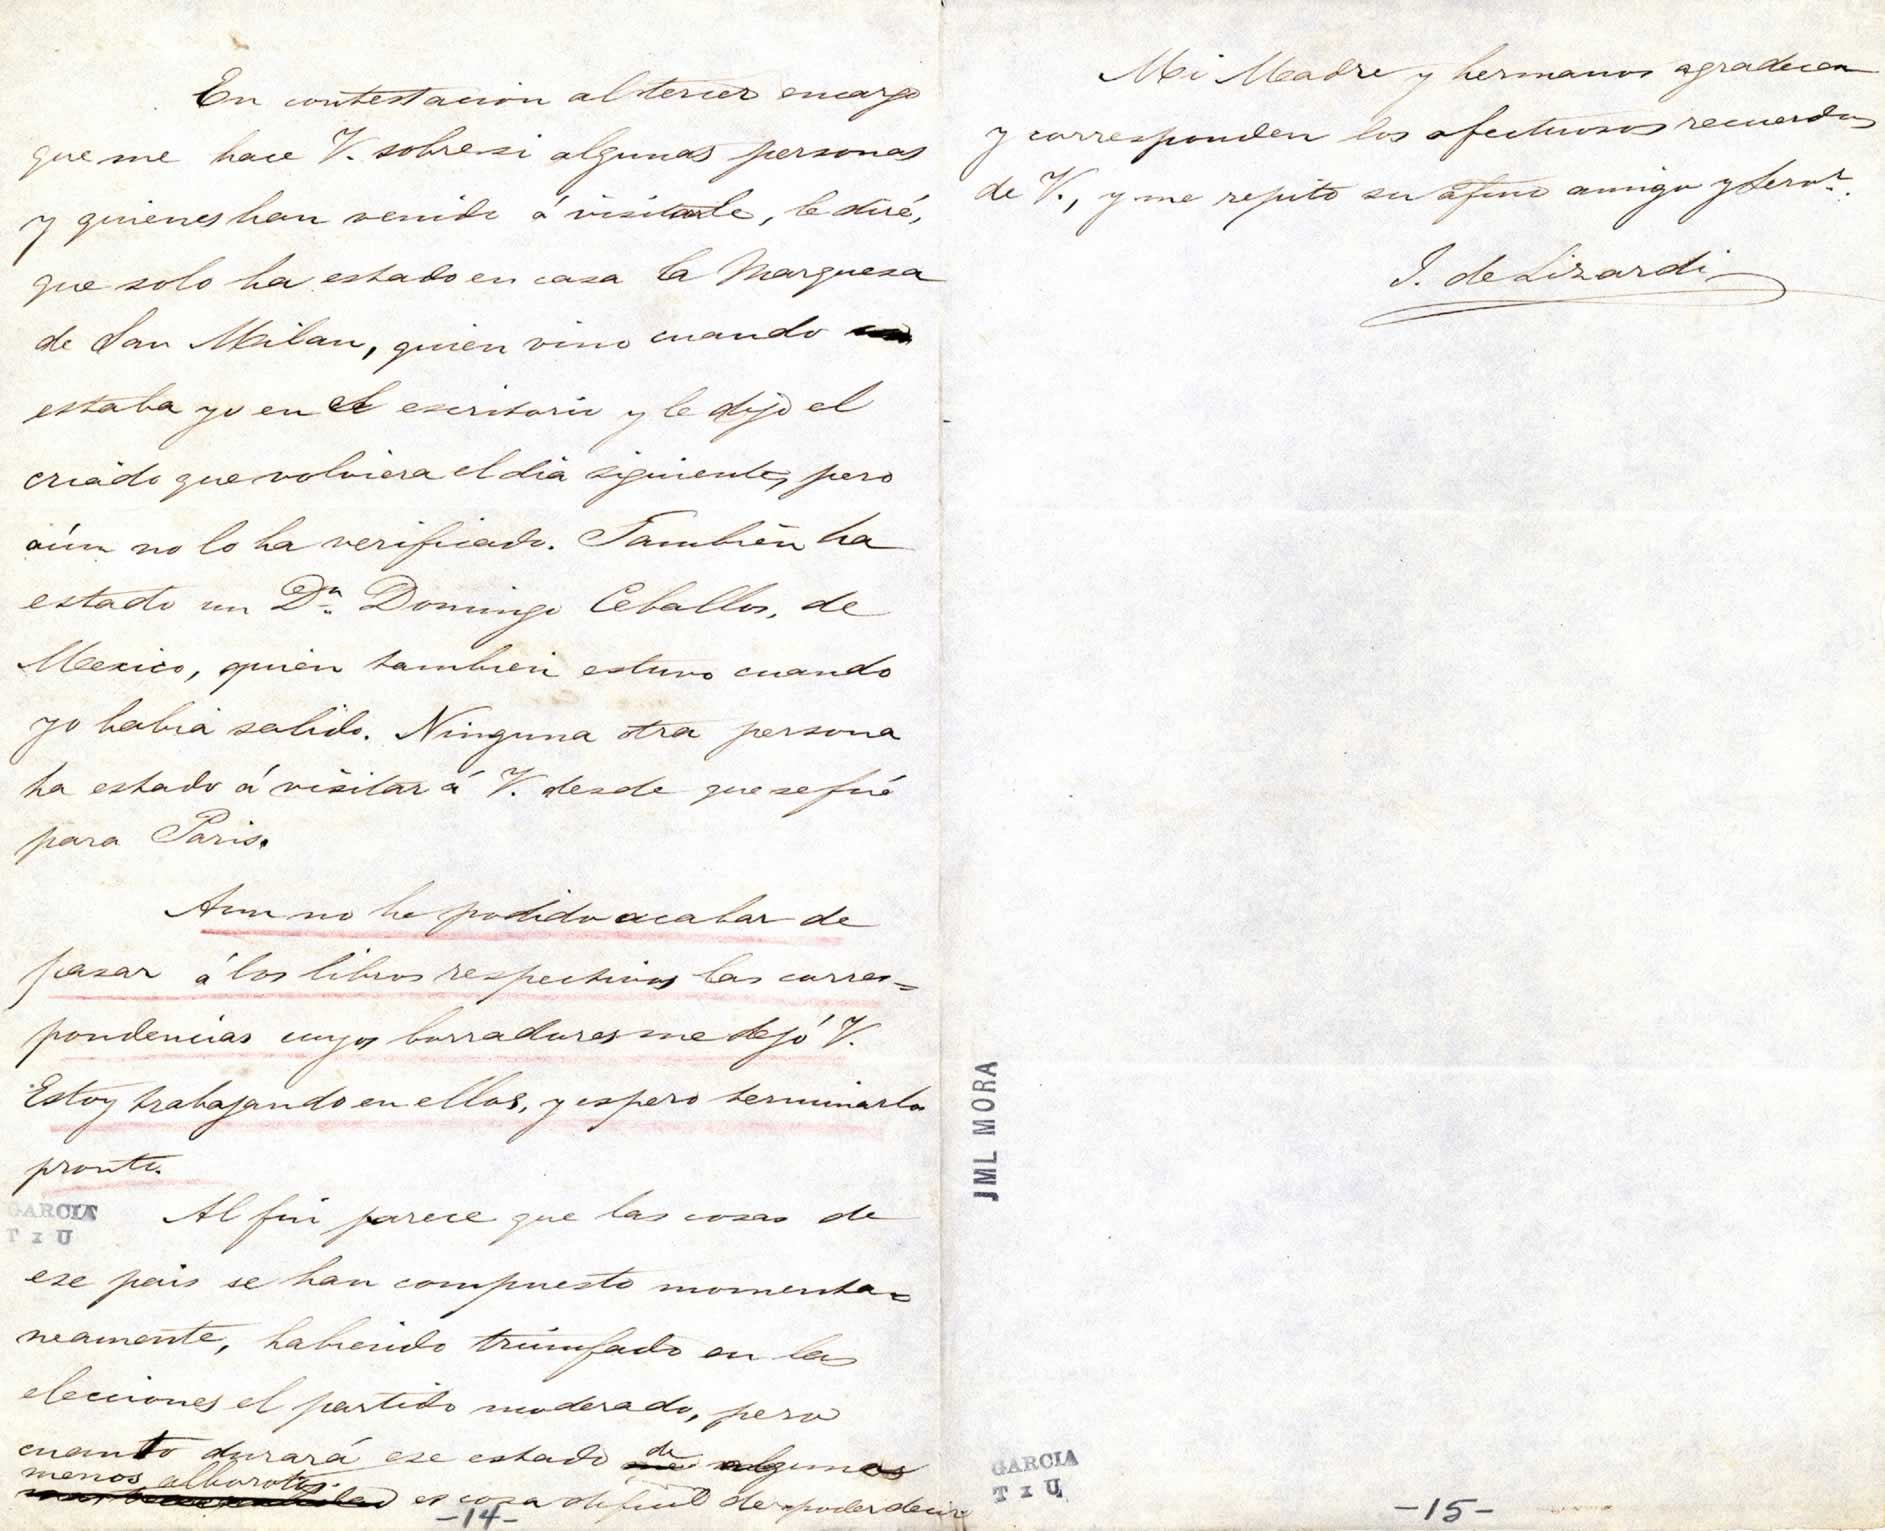 En contestacion al tercer encargo
que me hace V. sobre si algunas personas
y quienes han venido á visitarle, le diré,
que solo ha estado en casa la Marquesa
de San Milan, quien vino cuando
estaba yo en el escritorio y le dijo el
criado que volviera el dia siguiente, pero
aún no lo ha verificado. También ha
estado un Dn. Domingo Ceballos, de
Mexico, quien tambien estuvo cuando
yo habia salido. Ninguna otra persona
ha estado á visitar á V. desde que se fué
para Paris.
Aun no he podido acabar de
pasar á los libros respectivos las corres=
pondencias cuyos borradores me dejó V.
Estoy trabajando en ellos, y espero terminarlo
pronto.
Al fin parece que las cosas de
ese pais se han compuesto momenta=
neamente, habiendo triunfado en las
elecciones el partido moderado, pero
cuanto durará ese estado de algunos
menos alborotos
es cosa dificil de poder decir
GARCIA
T x U
-14-
Mi Madre y hermanos agradecen
y corresponden los afectuosos recuerdos
de V., y me repito su afmo amigo y servr.
J. de Lizardi
JML MORA
GARCIA
T x U
-15-